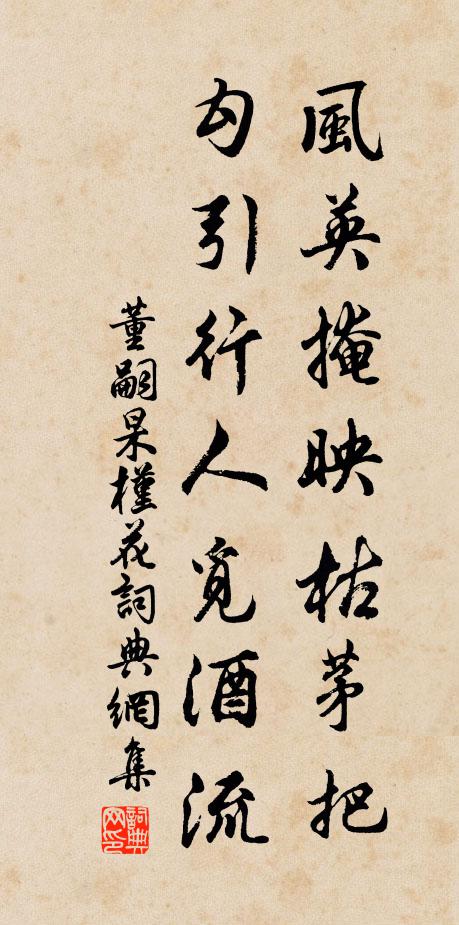 風英掩映枯茅把
勾引行人覓酒流
董嗣杲槿花詞典網集
詞典網印